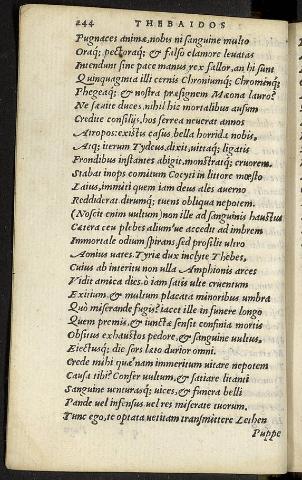 244 THEBAIDOS
Pugnaces animæ, nobis ni sanguine multo
Oraq; pectoraq; & falso clamore leuatas
Intendunt sine pace manus rex fallor, an hi sunt
Quinquaginta illi cernis Chroniumq; Chromenq;
Phegeaq; & nostra præsignem Mæona lauro?
Ne sæuite duces, nihil hic mortalibus ausum
Credite consilijs, hos serrea neuerat annos
Atropos: existis casus, bella horrida nobis,
Atq; iterum Tydeus, dixit, uittaq; ligatis
Frondibus instantes abigit, monstratq; cruorem.
Stabat inops comitum Cocyti in littore mœsto
Laius, immiti quem iam deus ales auerno
Reddiderat dirumq; tuens obliqua nepotem.
(Noscit enim uultum) non ille ad sanguinis haustus
Cætera ceu plebes alium'ue accedit ad imbrem
Immortale odium spirans, sed prosilit ultro
Aonius uates. Tyriæ dux inclyte Thebes,
Cuius ab interitu non ulla Amphionis arces
Vidit amica dies, ò iam satis ulte cruentum
Exitium, & multum placata minoribus umbra
Quò miserande fugis? iacet ille in funere longo
Quem premis, & iuncta sensit confinia mortis
Obsitus exhaustos pedore, & sanguine uultus,
Eiectusq; die sors læto durior omni.
Crede mihi quæ nam immeritum uitare nepotem
Causa tibi? Confer uultum, & satiare litanti
Sanguine uenturasq; uices, & funera belli
Pande uel infensus uel res miserate tuorum.
Tunc ego, te optata uetitam transmittere Lethen
Puppe